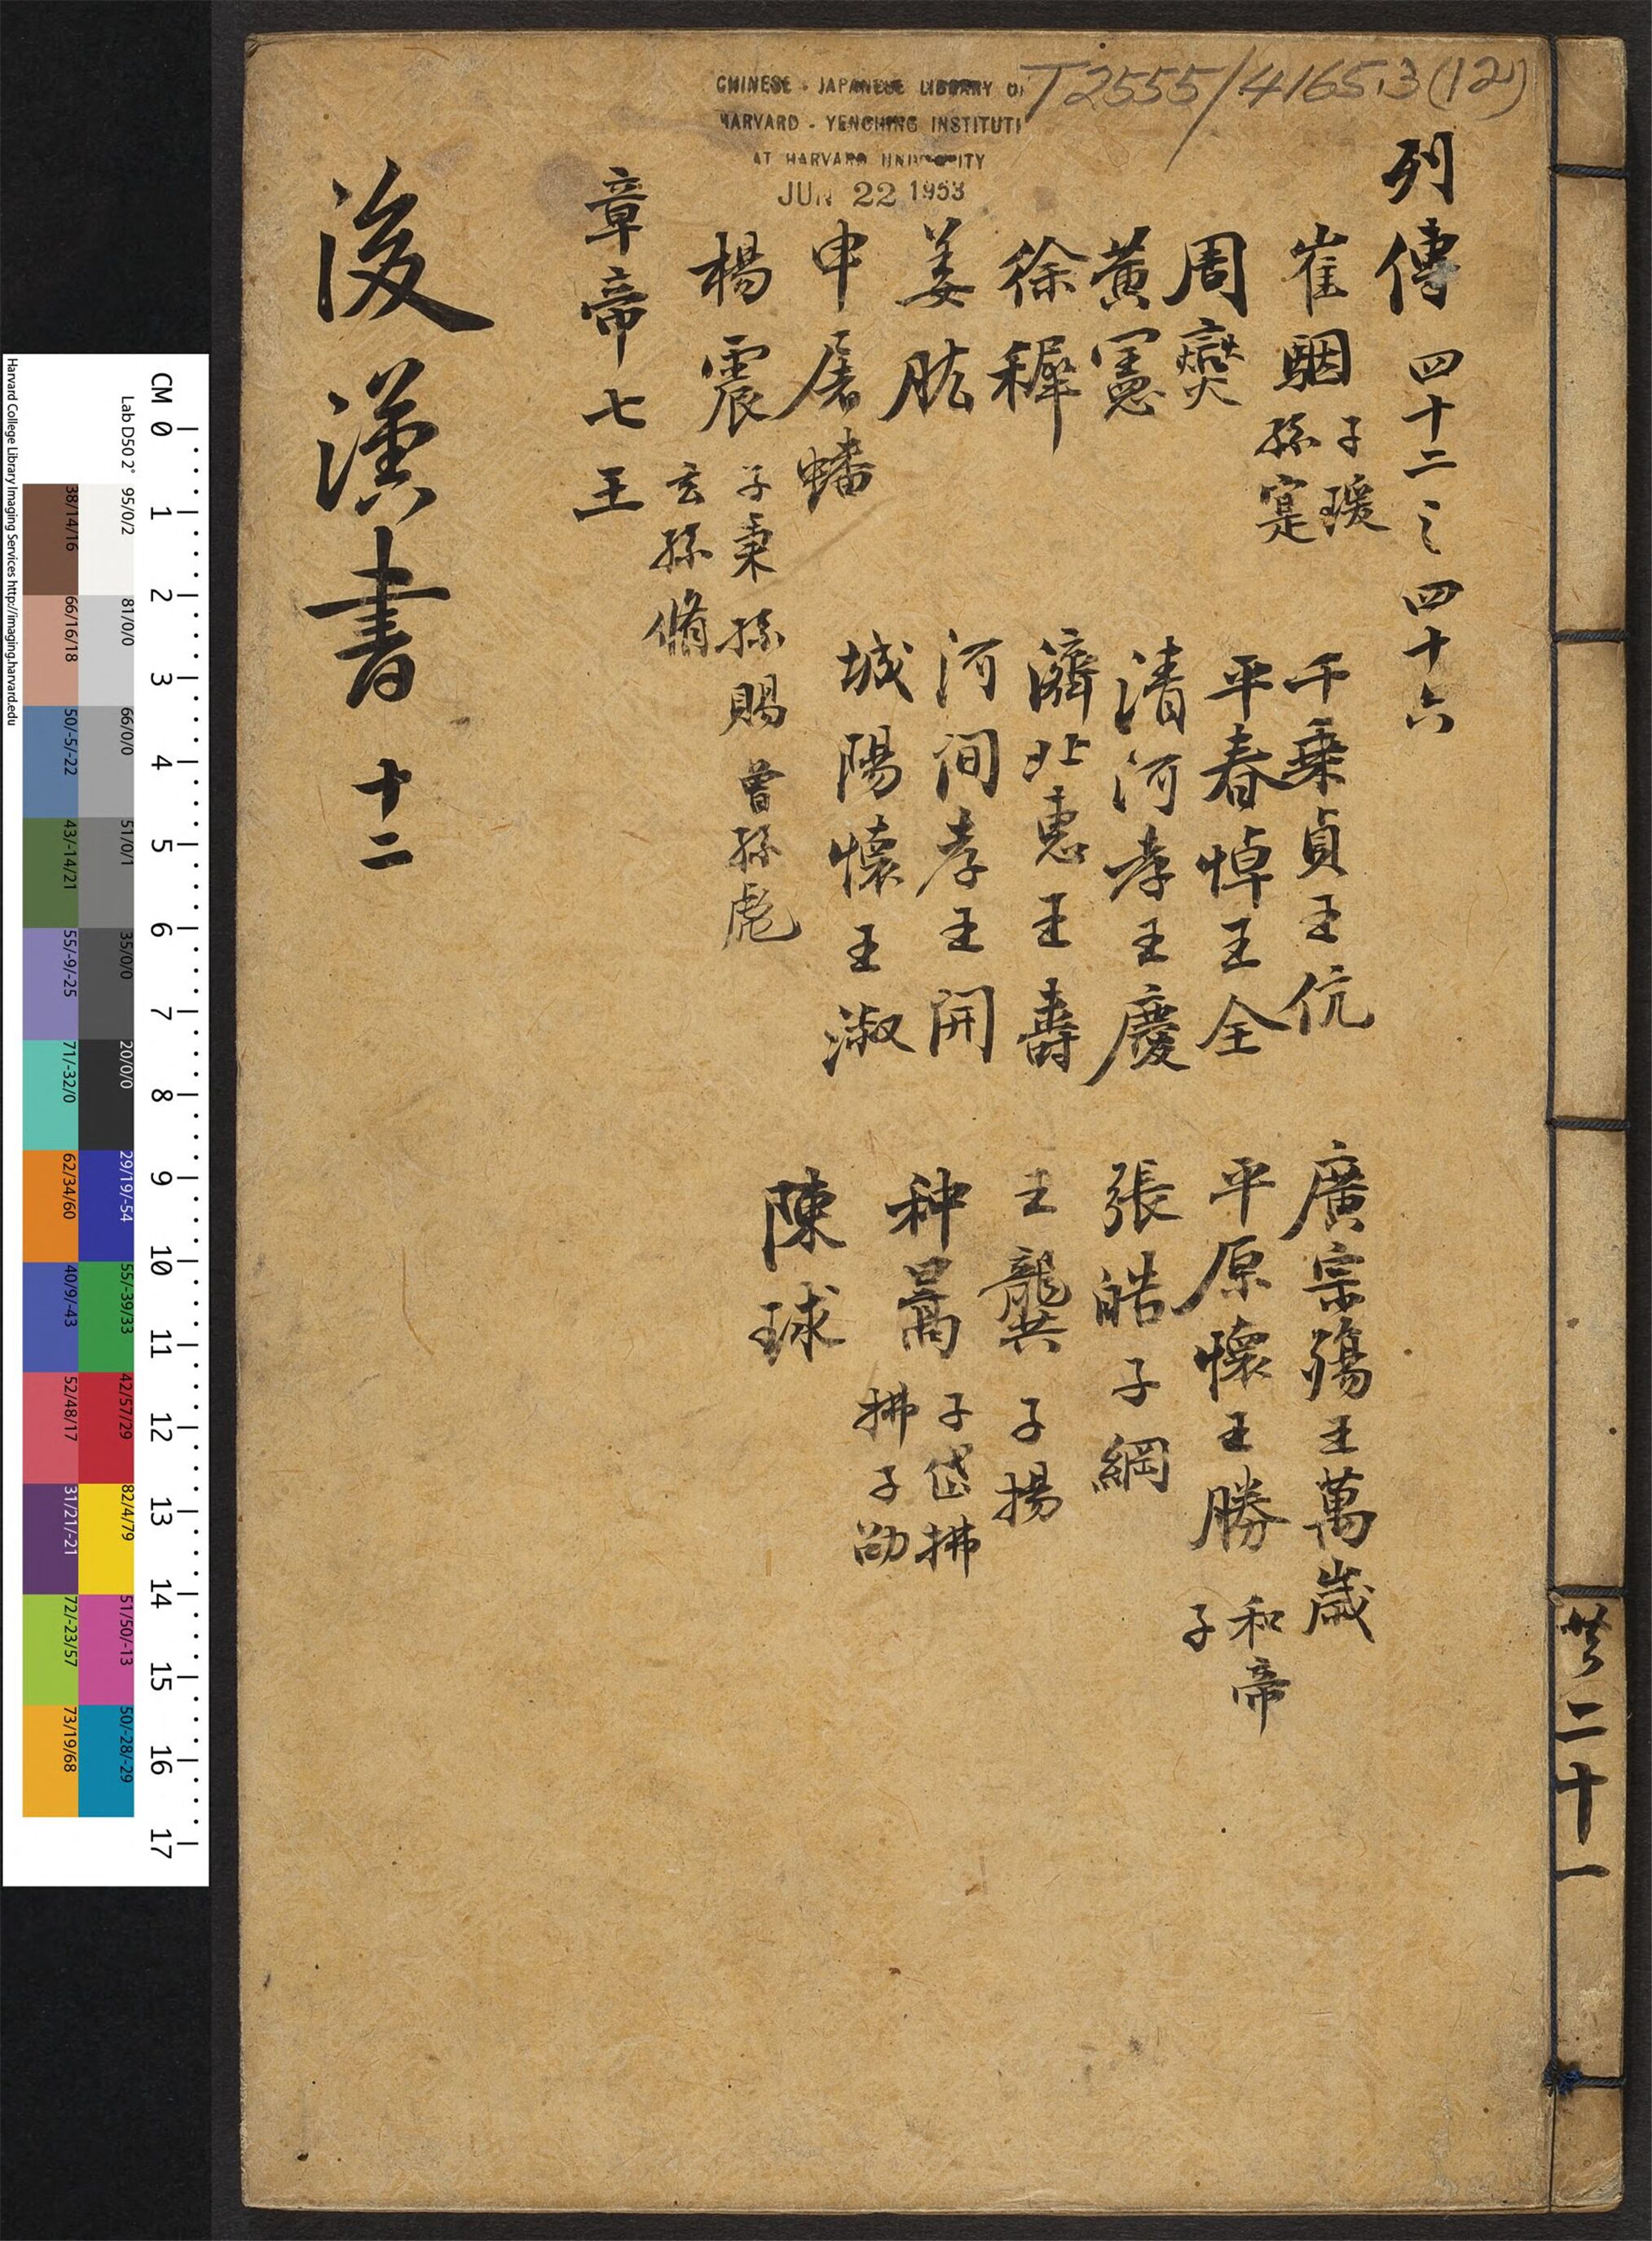 T2555/4165.3(12)
CHINESE - JAPANESE LIBRARY OF
HARVARD - YENCHING INSTITUTE
AT HARVARD UNIVERSITY
JUN 22 1953
列傳 四十二之四十六
崔駰 子瑗
孫寔
周燮
黃憲
徐稺
姜肱
申屠蟠
楊震 子秉 孫賜 曾孫彪
玄孫脩
章帝七王
千乘貞王伉
平春悼王全
清河孝王慶
濟北惠王壽
河間孝王開
城陽懷王淑
廣宗殤王萬歲
平原懷王勝 和帝
子
張皓 子綱
王龔 子揚
种暠 子岱拂
拂子劭
陳球
後漢書 十二
共二十一
CM 0 1 2 3 4 5 6 7 8 9 10 11 12 13 14 15 16 17
Lab D50 2° 95/0/2 81/0/0 66/0/0 51/0/1 35/0/0 20/0/0 29/19/-54 55/-39/33 42/57/29 82/4/79 51/50/-13 50/-28/-29
38/14/16 66/16/18 50/-5/-22 43/-14/21 55/-9/-25 71/-32/0 62/34/60 40/9/-43 52/48/17 31/21/-21 72/-23/57 73/19/68
Harvard College Library Imaging Services http://imaging.harvard.edu